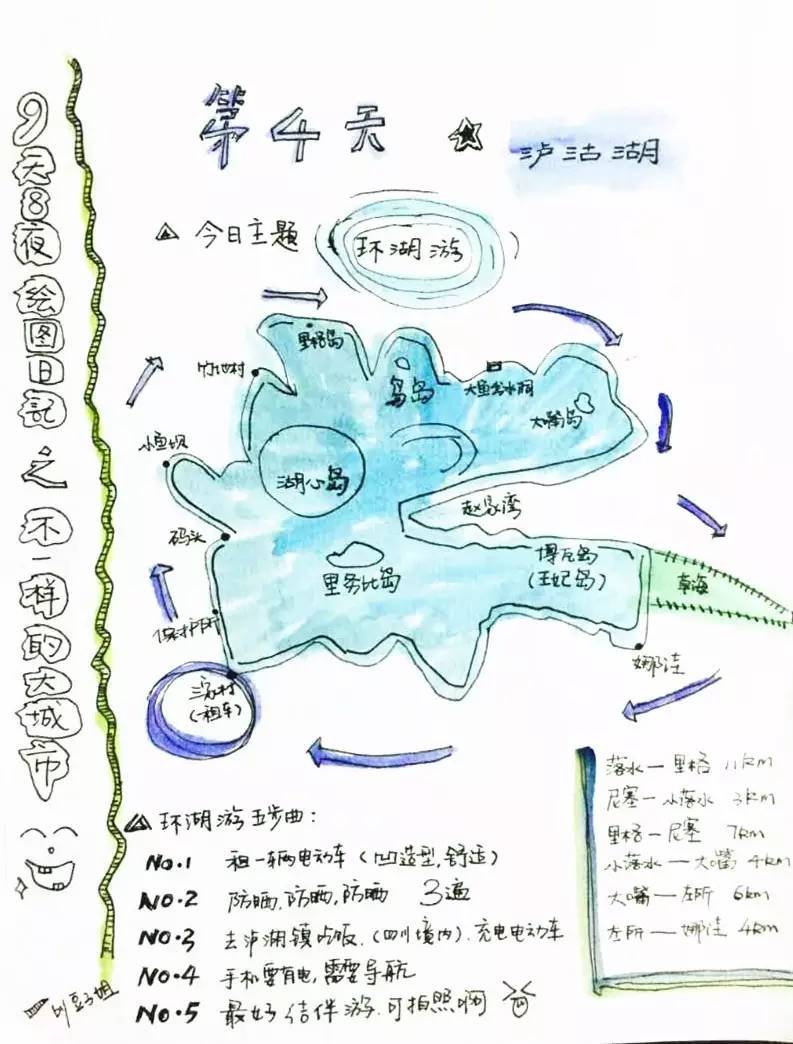 9天8夜绘图日记之不一样的大城市
第4天
泸沽湖
今日主题
环湖游
里格岛
竹地村
鸟岛
大鱼出水洞
大嘴岛
小鱼坝
湖心岛
赵家湾
码头
里务比岛
博瓦岛
(王妃岛)
草海
保护所
娜洼
三家村
(租车)
落水一里格 11km
尼塞一小落水 3km
里格一尼塞 7km
小落水一大嘴 4km
大嘴一左所 6km
左所一娜洼 4km
环湖游五步曲:
No.1 租一辆电动车(凹造型,舒适)
No.2 防晒,防晒,防晒 3遍
No.3 去泸湖镇吃饭,(四川境内),充电电动车
No.4 手机要有电,需要导航
No.5 最好结伴游,可拍照啊
by豆子姐